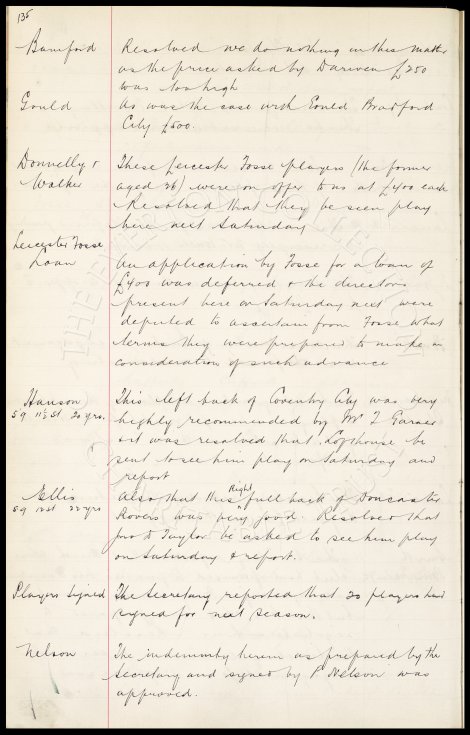 135
Bamford Resolved we do nothing in this matter
as the price asked by Darwen £250
was too high
Gould As was the case with Gould Bradford
City £500.
Donnelly & These Leicester Fosse players (the former
Walker aged 26) were on offer to us at £400 each
Resolved that they be seen play
here next Saturday
Leicester Fosse
Loan An application by Fosse for a loan of
£400 was deferred & the directors
present here on Saturday next were
deputed to ascertain from Fosse what
terms they were prepared to make in
consideration of such advance
Hanson This left back of Coventry City was very
5 9 11½ st 20 yrs. highly recommended by Mr T
& it was resolved that Lofthouse be
sent to see him play on Saturday and
report
Ellis Also that this Right full back of Doncaster
5 9 12 st 22 yrs Rovers was very good. Resolved that
Taylor be asked to see him play
on Saturday & report.
Players Signed The Secretary reported that 20 players had
signed for next season.
Nelson The indemnity herein as prepared by the
Secretary and signed by P Nelson was
approved.
THE EVERTON COLLECTION